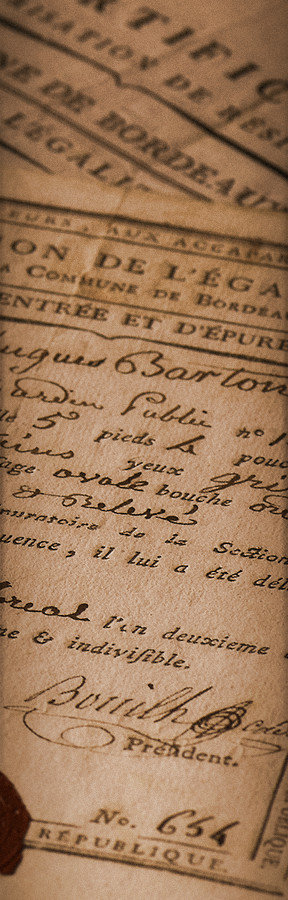 RTIFIC
ISATION DE RÉSI
NE DE BORDEAUX
L'ÉGALI
EURS, AUX ACCAPAR
ON DE L'ÉGA
A COMMUNE DE BORDEAU
ENTRÉE ET D'ÉPURE
ugues Barton
ardin Public n° 1
5 pieds 4 pouc
yeux gri
age ovale bouche
& relevé
de la Section
uence, il lui a été dél
l'an deuxieme
ne & indivisible.
Président.
No. 654
RÉPUBLIQUE.